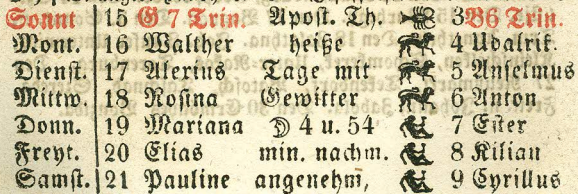 Sonnt 15 G 7 Trin. Apost. Th. 3 B6 Trin.
Mont. 16 Walther heiße 4 Udalrik.
Dienst. 17 Alexius Tage mit 5 Anselmus
Mittw. 18 Rosina Gewitter 6 Anton
Donn. 19 Martana ☽ 4 u. 54 7 Ester
Freyt. 20 Elias min. nachm. 8 Kilian
Samst. 21 Pauline angenehm, 9 Cyrillus